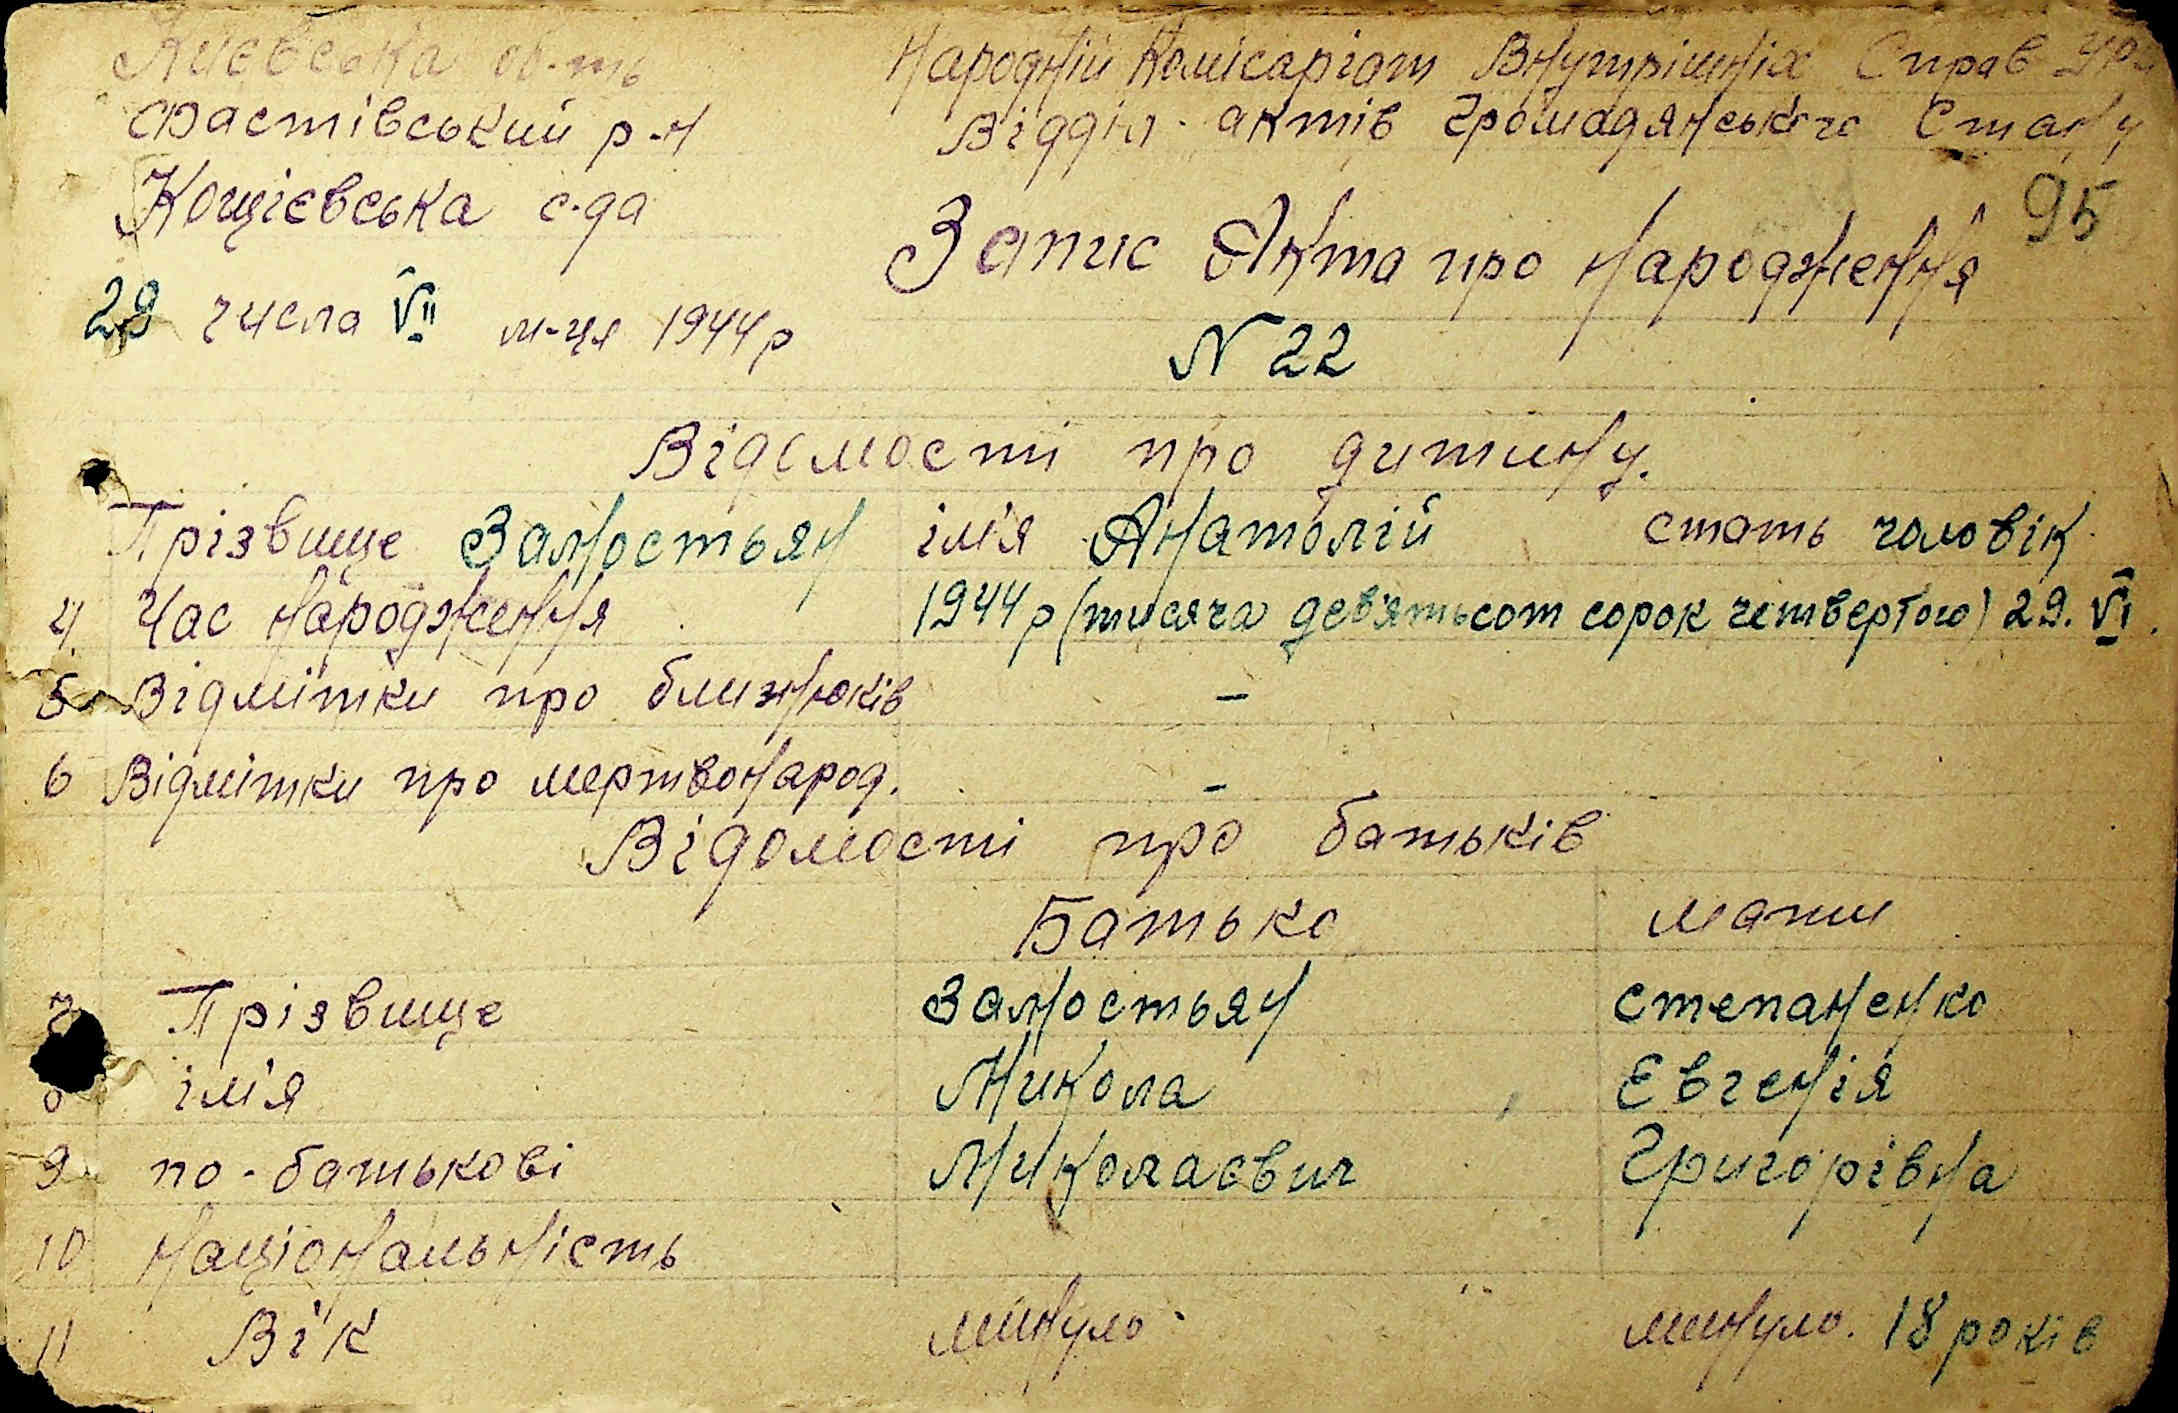 Києвська об-ть
Фастівський р-н
Кощієвська с-да
29 числа VII м-ця 1944 р
Народній Комісаріат Внутрішніх Справ
Відділ актів Громадянського Стану
95
Запис Акта про народження
N 22
Відомості про дитину.
Прізвище Замостьян ім'я Анатолій стать чоловік.
4. Час народження 1944 р (тисяча дев'ятьсот сорок четвертого) 29. VI.
5 Відмітки про близнюків –
6 Відмітки про мертвонарод. –
Відомості про батьків
Батько мати
7 Прізвище Замостьян Степаненко
8 ім'я Микола Євгенія
9 по-батькові Миколаєвич Григорівна
10 Національність
11 Вік минуло минуло. 18 років